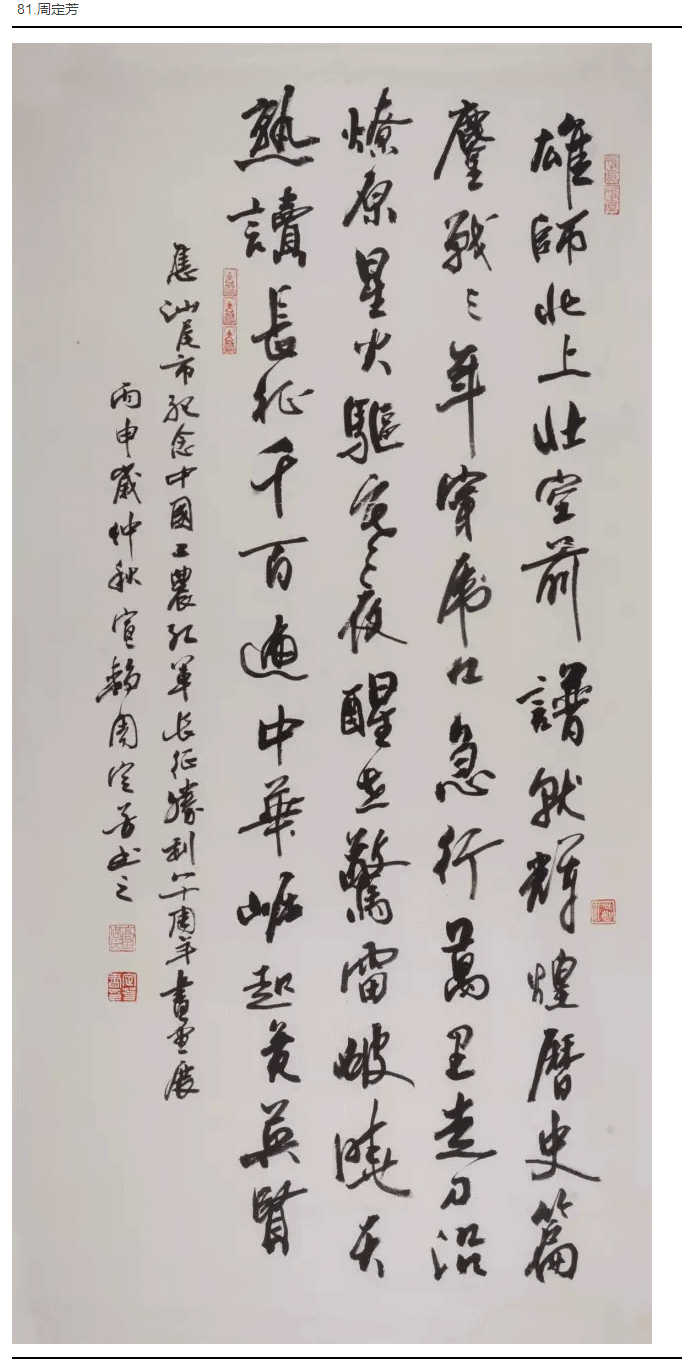 81.周定芳
雄師北上壯空前譜就輝煌曆史篇
鏖戰三年穿虎口急行萬里走刀沿
燎原星火驅寒夜醒世驚雷破曉天
熟讀長征千百遍中華崛起羨英賢
應汕尾市紀念中國工農紅軍長征勝利八十周年書畫展
丙申歲仲秋宣 周定芳書之